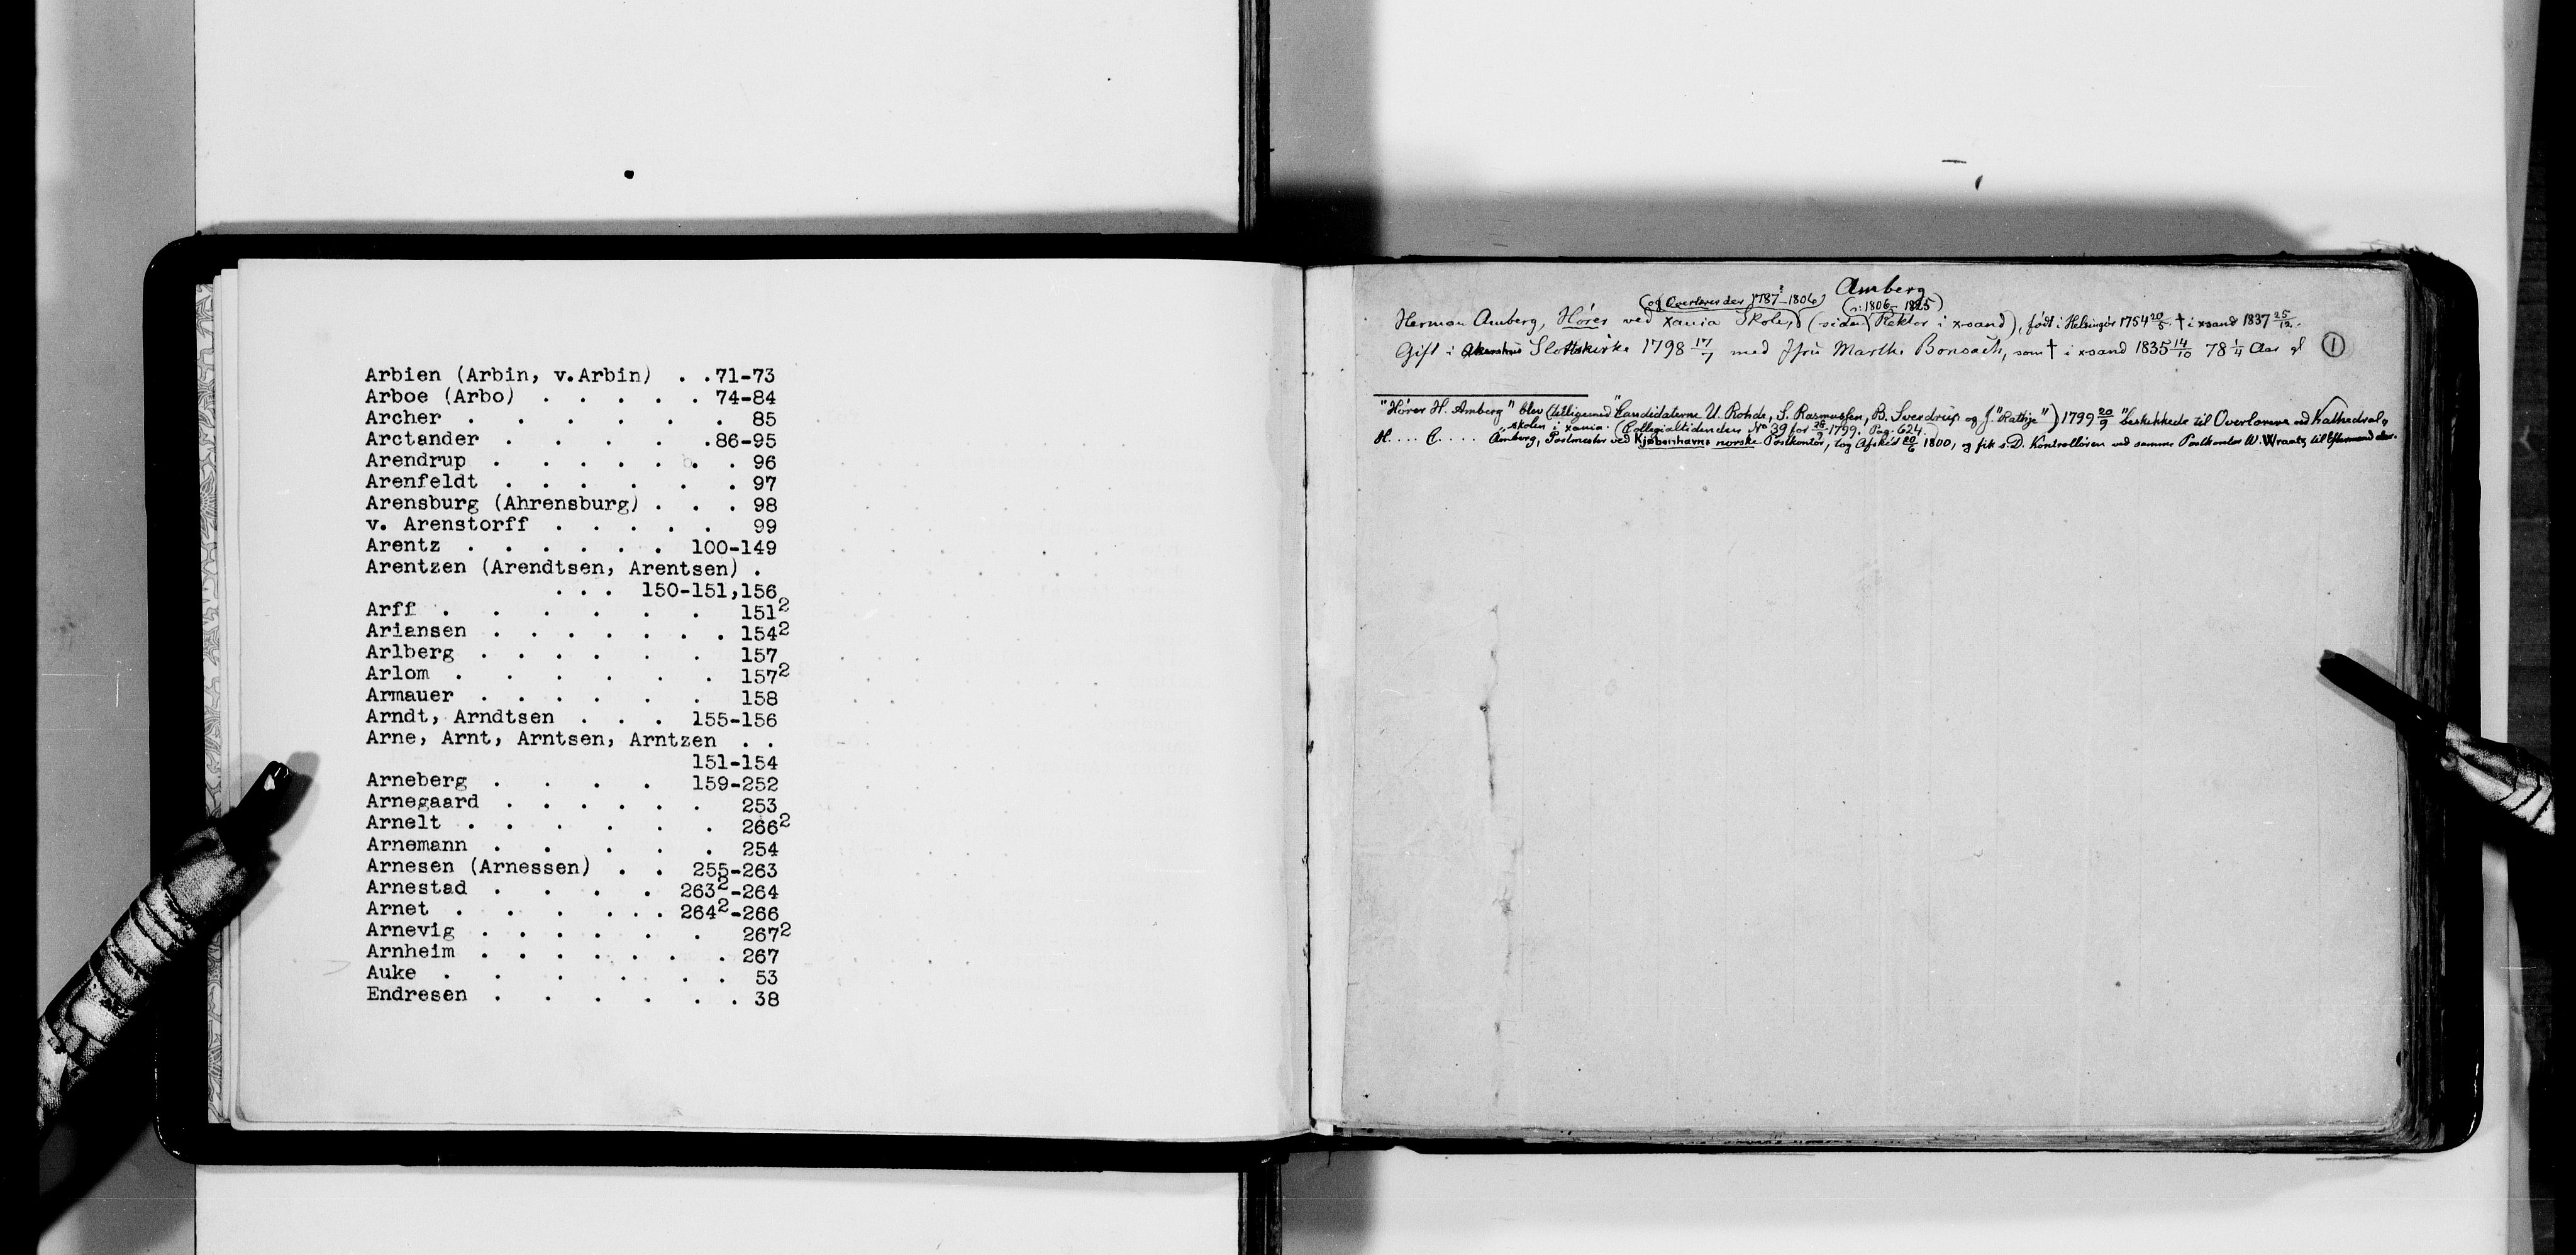 Arbien (Arbin, v.Arbin) . .71-73
Arboe (Arbo) . . . . . 74-84
Archer . . . . . . . 85
Arctander . . . . .86-95
Arendrup . . . . . . . 96
Arenfeldt . . . . . . 97
Arensburg (Ahrensburg) . . . 98
v. Arenstorff . . . . . 99
Arentz . . . . . . 100-149
Arentzen (Arendtsen, Arentsen) .
. . . 150-151,156
Arff . . . . . . 151²
Ariansen . . . . . . . 154²
Arlberg . . . . . . 157
Arlom . . . . . . 157²
Armauer . . . . . . 158
Arndt, Arndtsen . . . 155-156
Arne, Arnt, Arntsen, Arntzen . .
151-154
Arneberg . . . . 159-252
Arnegaard . . . . . . 253
Arnelt . . . . . . 266²
Arnemann . . . . . 254
Arnesen (Arnessen) . . 255-263
Arnestad . . . . 263²-264
Arnet . . . . . . 264²-266
Arnevig . . . . . . 267²
Arnheim . . . . . . . 267
Auke . . . . . . . 53
Endresen . . . . . . 38
Amberg
(og Overlærer der 1787²-1806) (ɔ: 1806-1825)
Herman Amberg, Hører ved Xania Skole, (siden Rektor i xsand), født i Helsingør 1754 20/5. † i xsand 1837 25/12.
Gift i Akershus Slotskirke 1798 17/7 med Jfru Marthe Bonsach, som † i xsand 1835 14/10 78 1/4 Aar gl ①
"Hører H. Amberg" blev (tilligemed "Candidaterne U. Rohde, S. Rasmussen, B. Sverdrup og J. "Rathje") 1799 20/9 "beskikkede til Overlærere ved Kathedral-
skolen i Xania. (Collegialtidenden No 39 for 28/9 1799. Pag. 624.)
H.... C..... Amberg, Postmester ved Kjøbenhavns norske Postkontor, tog Afsked 20/6 1800, og fik s.D. Kontrolløren ved samme Postkontor W. Wraatz til Eftermand der.